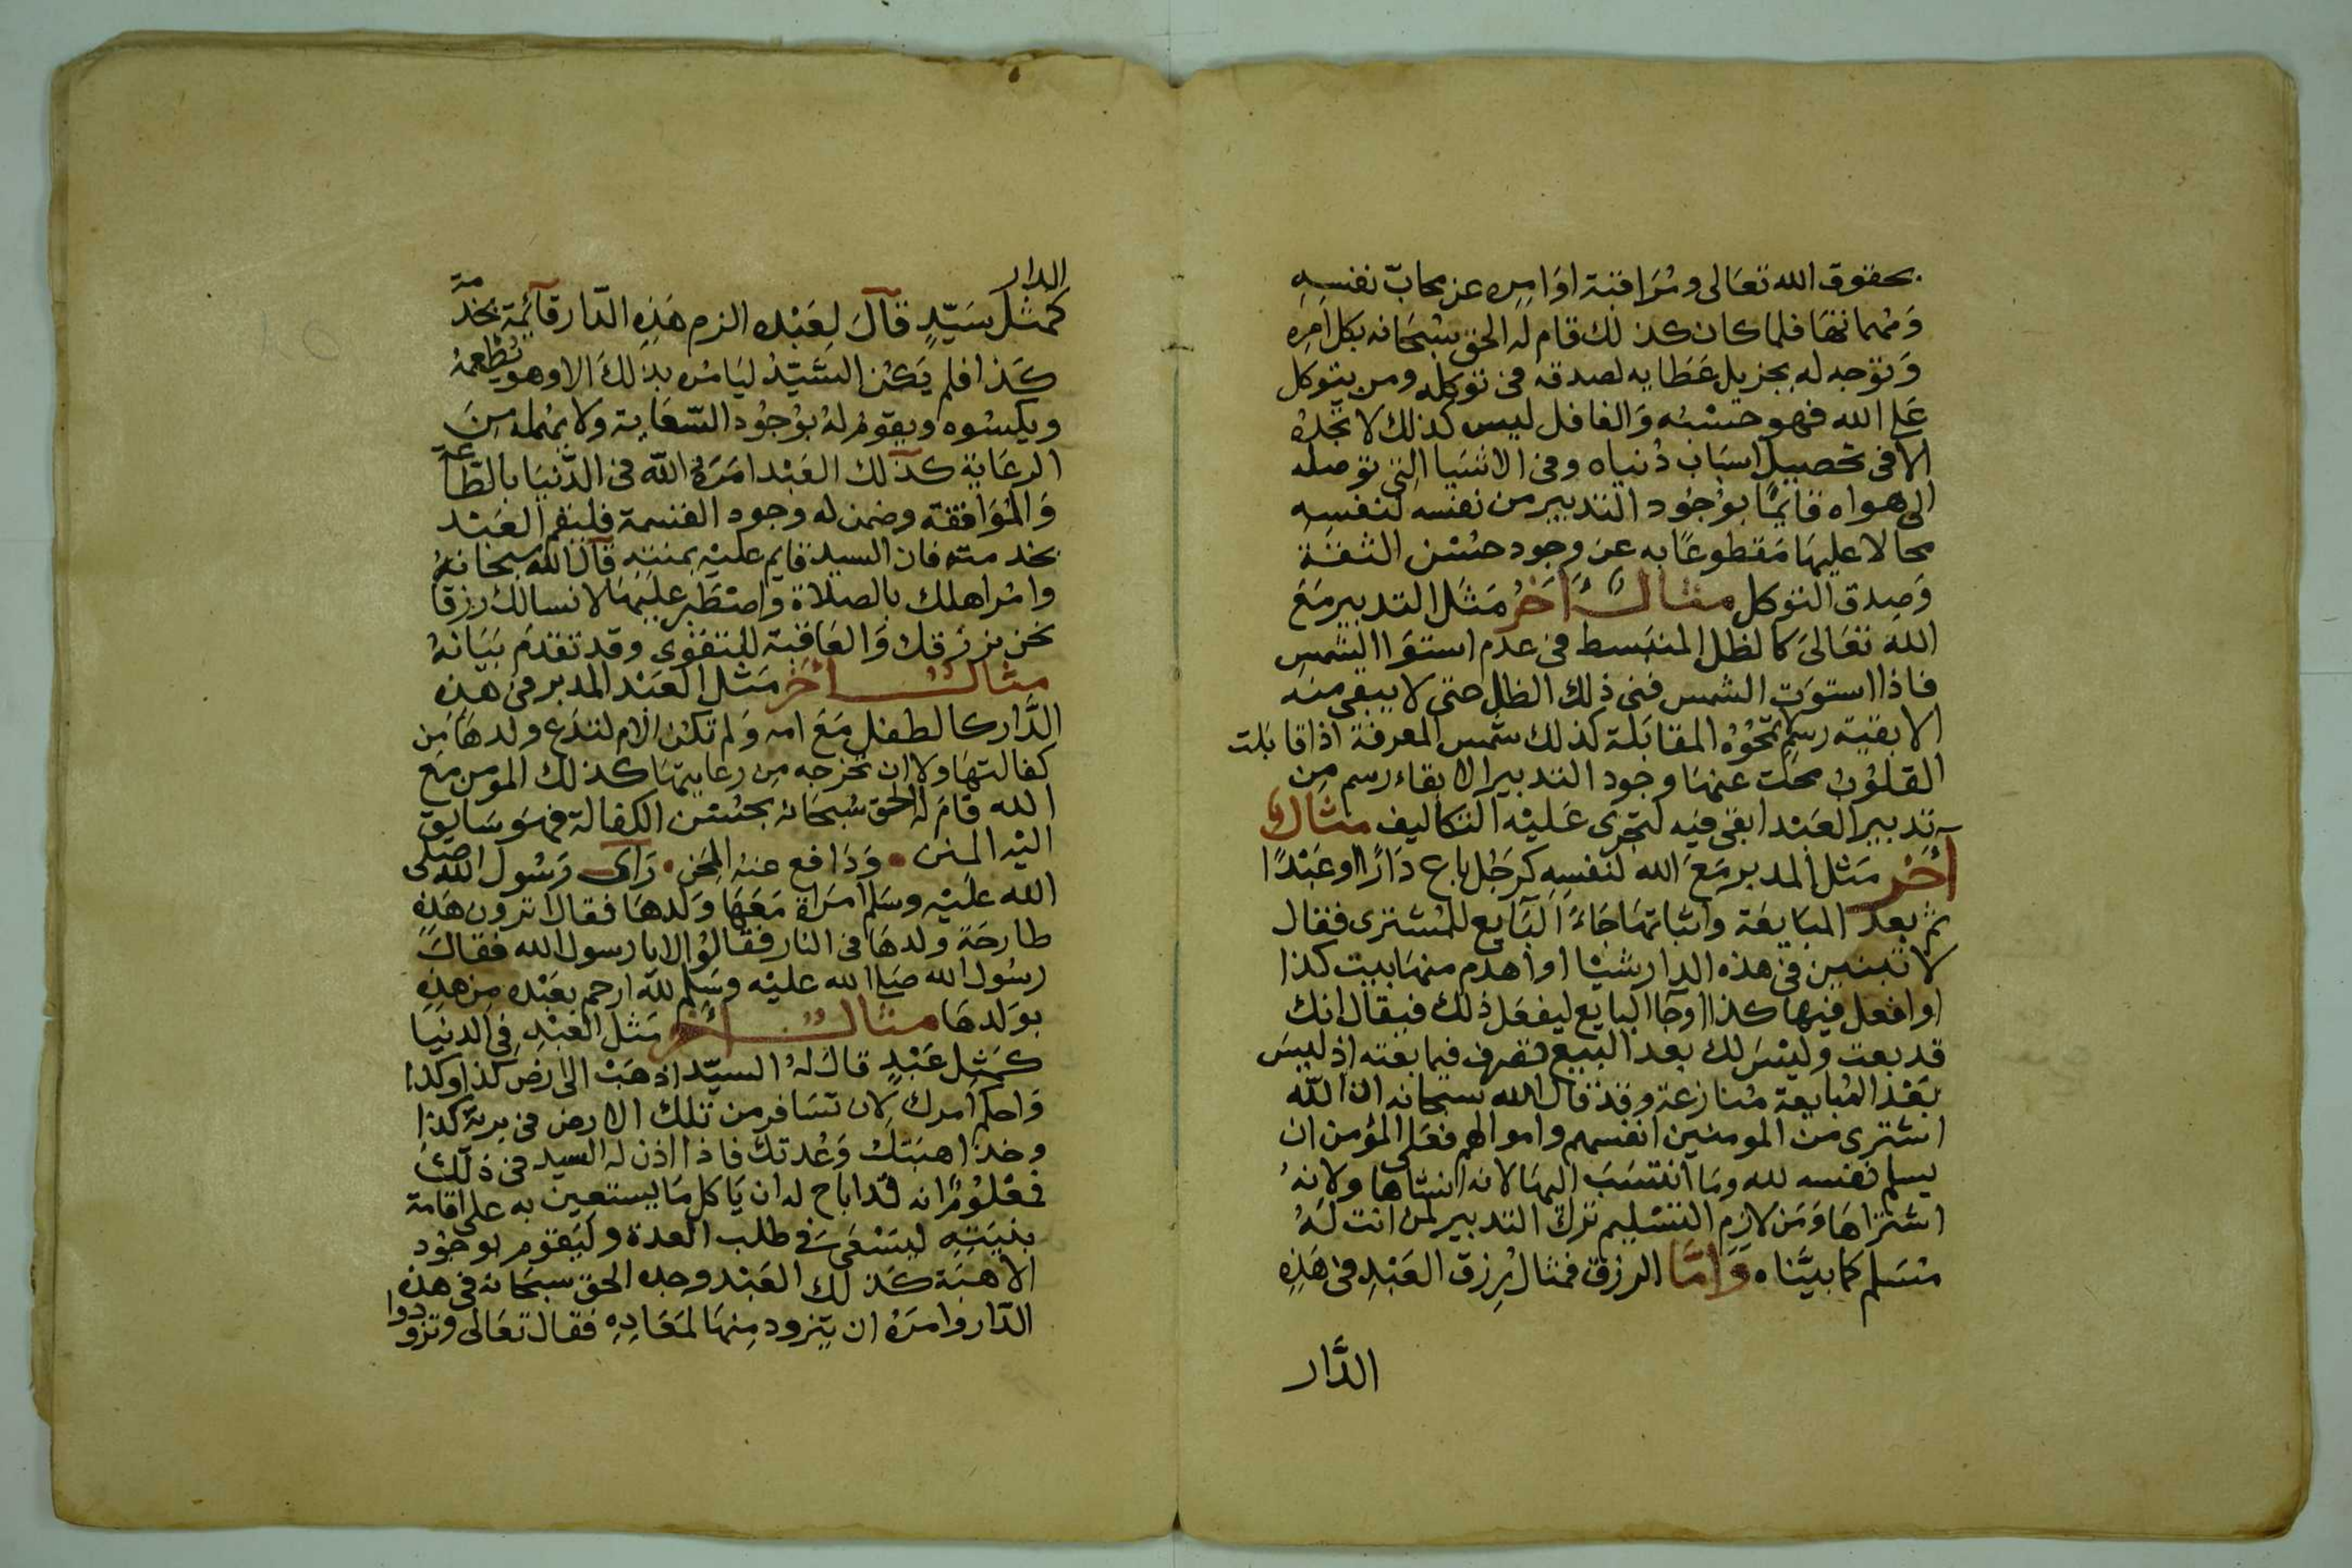 بحقوق الله تعالى ومُرَاقبة اوَامِره عن محابّ نفسِهِ
وَمهمانها فلما كان كذلك قام لهُ الحق سُبْحَانه بكل امره
وَتوَجه له بجزيل عَطَايه لصدقه فى توكله ومن يتوكل
عَلى الله فهو حسْبُه وَالغافل ليس كذلك لا تجدُه
الا فى تحصيل اسبَاب دُنياه وفى الاشيَا التى توصله
الى هواه قايمًا بوُجُود التدبير من نفسه لنفسِه
محالا عليهَا مَقطوعًا به عن وجود حُسْن الثقَة
وَصِدق التوكل مثالٌ اخَرُ مَثَل التدبير مَعَ
الله تعَالىَ كالظل المنبسط فى عدم استوَا الشمسِ
فاذا استوَتِ الشمس فنى ذلك الظل حتى لا يبقى منه
الا بقية رسمٍ تمحُوُه المقابَلة كذلك شمس المعرفة اذا قابَلت
القلوُبُ محَت عنهَا وجود التدبير الا بقاء رسم مِن
تدبير العَبْد ابقى فيه لتجرى عَليْه التكاليف مثالٌ
آخَر مَثل المدبر مَعَ الله لنفسِهِ كرَجُل باع دَارًا او عَبْدًا
ثم بعد المبَايعَة واثباتهَا جَاءَ البَايع للمشترى فقال
لا تبنين فى هذه الدار شيْا او اهدم منهَا بيت كذا
او افعل فيهَا كذا او جَا البايع ليفعَل ذلك فيقال انك
قد بعت وليْسَ لك بعد البيع تصرف فيما بعته اذ ليسَ
بَعْد المُبايعة مُنازعة وقد قال الله سبحانه ان اللّه
اشترى من المومنين انفسهم واموالهم فعَلى المؤمن ان
يسلم نفسه لله ومَا انتسَبَ اليهَا لانه انشاها ولانهُ
اشترَاهَا وَمَن لازِم التسْليم ترك التدبير لمن انت لَهُ
مسَلم كما بيَّناه وَأمَّا الرزق فمثال رِزق العَبْدِ فى هَذِهِ
الدَّار
الدار
كمَثَل سَيّدٍ قالَ لعَبْده الزم هَذِهِ الدَّار قائمة بخدمة
كذا فلم يَكن السَّيّدُ ليَامُره بذلكَ الا وهو يُطعمهُ
ويكسُوه ويقوَمُ لهُ بوُجُود السّعَاية ولا يُهمله مِنَ
الرعَاية كذلك العَبْد امَرَهُ الله فى الدُّنيَا بالطّاعة
وَالمُوَافقة وضمن له وجود القسمة فليقم العَبْد
بخدمته فان السيد قايم عليْه بمنته قال الله سبحانهُ
وامُر اهلك بالصلاة وَاصْطَبر عليهَا لا نسالك رزقا
نحن نرزقك وَالعَاقبة للتقوى وقد تقدَم بيَانهُ
مثالٌ اخَر مَثل العَبْد المدبر فى هذه
الدَّار كالطفل مَعَ امه وَلم تكن الام لتدَع ولدهَا مَن
كفالتهَا ولا ان تخرجه مِن رعايتهَا كذلك المومن مَع
الله قامَ لهُ الحق سُبحَانه بحسْن الكفالة فهوَ سَايق
اليْه المِنَن ۰ وَدَافع عنهُ المِحَن ۰ رَاى رَسُول الله صَلى
الله عليْه وسَلم امرَاة مَعَهَا وَلدهَا فقال اترون هَذِه
طارحَة ولدهَا فى النار فقالوُا لا يا رسول الله فقالَ
رسُول الله صَلى الله عليْه وسَلم للّه ارحم بعَبْده مِن هَذِه
بوَلدهَا مثالٌ آخَر مَثل العَبْدِ فى الدنيَا
كمَثل عَبْدٍ قالَ لهُ السيّد اذهَبْ الى ارضِ كذا وكذا
وَاحكم امرك لان تسَافر من تلك الارض فى برية كذا
وخذ اهبَتك وَعُدتك فاذا اذن له السيد فى ذلكَ
فمعْلوُمٌ انه قد اباح له ان يَاكل مَا يستعين به على اقامة
بنيته ليَسْعَى فى طلب العدة وليَقوَم بوجُود
الاهبَة كذلك العَبْد وجده الحق سبحَانه فى هذه
الدَّار وامَرَهُ ان يتزود مِنهَا لمعَادِهِ فقال تعَالى وتزودوا